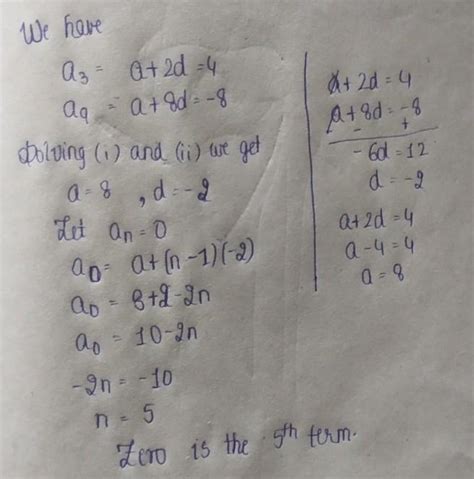 We have
a₃ = a+2d=4
a₉ = a+8d=-8
Solving (i) and (ii) we get
a=8 , d=-2
Let aₙ=0
a₀= a+(n-1)(-2)
a₀ = 8+2-2n
a₀ = 10-2n
-2n = -10
n = 5
Zero is the 5th term.
a+2d=4
a+8d=-8
- +
-6d=12
d=-2
a+2d=4
a-4=4
a=8